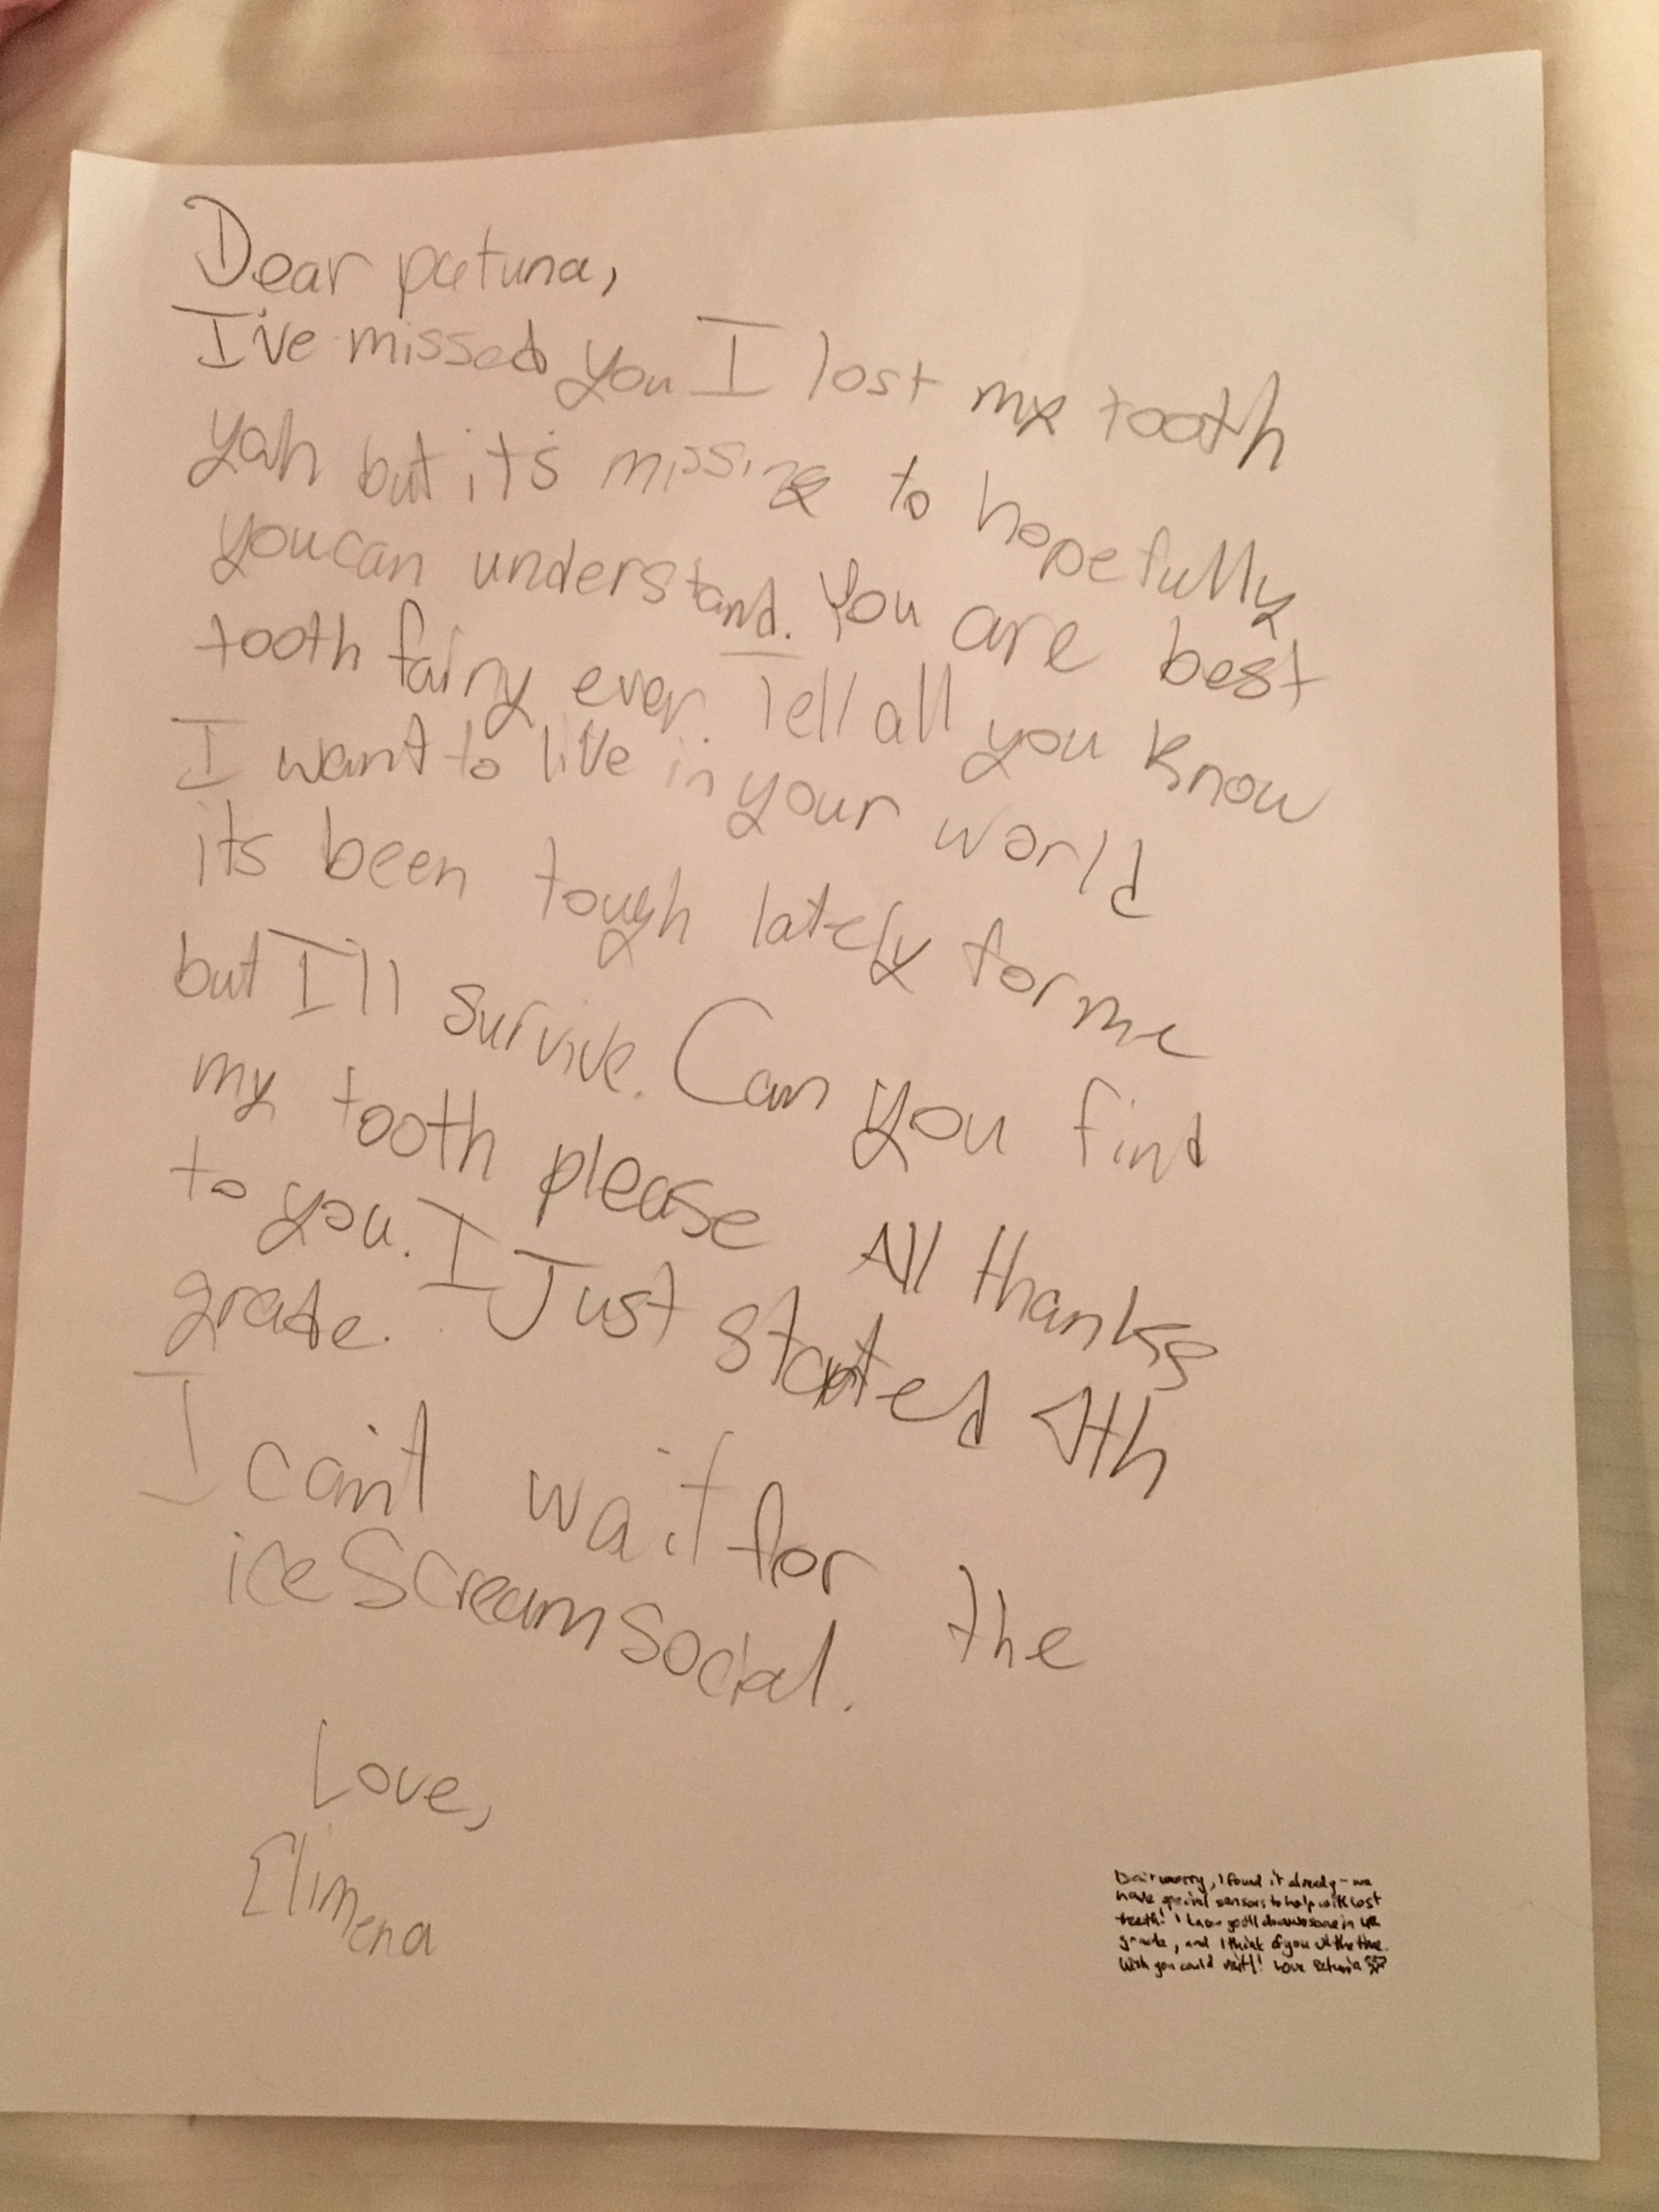 Dear petuna,
I've missed you I lost my tooth
yah but it's missing to hopefully
you can understand. You are best
tooth fairy ever. Tell all you know
I want to live in your world
its been tough lately for me
but I'll survive. Can you find
my tooth please All thanks
to you. I Just started 4th
grade.
I can't wait for the
ice Scream Social.
Love,
Elimena
Don't worry, I found it already - we
have special sensors to help with lost
teeth! I know you'll do awesome in 4th
grade, and I think of you all the time.
Wish you could visit! Love Petunia